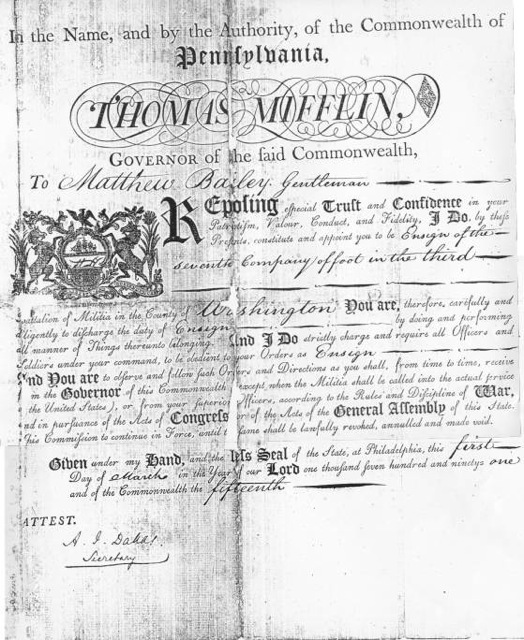 In the Name, and by the Authority, of the Commonwealth of
Pennſylvania,
THOMAS MIFFLIN,
GOVERNOR of the ſaid Commonwealth,
To Matthew Bailey Gentleman
REpoſing eſpecial Truſt and Confidence in your
Patriotiſm, Valour, Conduct, and Fidelity, I Do, by theſe
Preſents, conſtitute and appoint you to be Ensign of the
seventh Company of foot in the third
Battalion of Militia in the County of Washington You are, therefore, carefully and
diligently to diſcharge the duty of Ensign by doing and performing
all manner of Things thereunto belonging. And I Do ſtrictly charge and require all Officers and
Soldiers under your command, to be obedient to your Orders as Ensign
And You are to obſerve and follow ſuch Orders and Directions as you ſhall, from time to time, receive
the Governor of this Commonwealth (except when the Militia ſhall be called into the actual ſervice
the United States), or from your ſuperior Officers, according to the Rules and Diſcipline of War,
and in purſuance of the Acts of Congreſs or of the Acts of the General Aſſembly of this State.
This Commiſſion to continue in Force, until ſame ſhall be lawfully revoked, annulled and made void.
Given under my Hand, and the leſs Seal of the State, at Philadelphia, this first
Day of March in the Year of our Lord one thouſand ſeven hundred and ninety one
and of the Commonwealth the fifteenth
ATTEST.
A. J. Dallas.
Secretary